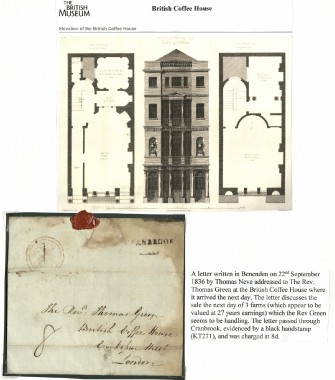 THE
BRITISH
MUSEUM
British Coffee House
Elevation of the British Coffee House
CRANBROOK
The Revd. Thomas Green
British Coffee House
Cockspur Street
London
8
A letter written in Benenden on 22nd September
1836 by Thomas Neve addressed to The Rev.
Thomas Green at the British Coffee House where
it arrived the next day. The letter discusses the
sale the next day of 3 farms (which appear to be
valued at 27 years earnings) which the Rev Green
seems to be handling. The letter passed through
Cranbrook, evidenced by a black handstamp
(KT271), and was charged at 8d.